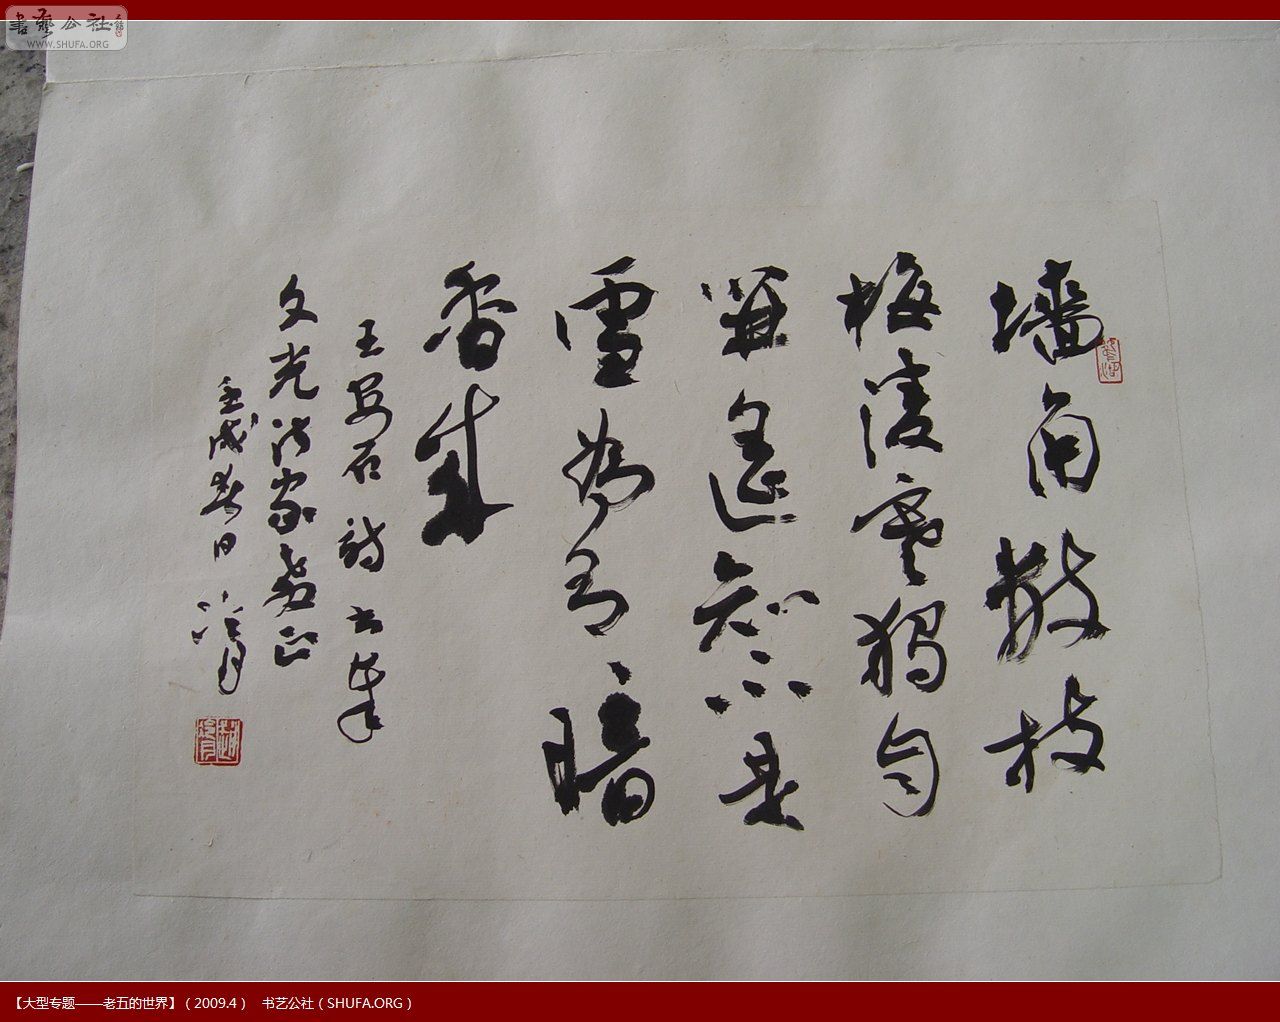 书艺公社
WWW.SHUFA.ORG
墙角数枝
梅凌寒独自
开遥知不是
雪为有暗
香来
王安石诗一首
文光法家教正
壬戌春日
【大型专题——老五的世界】（2009.4） 书艺公社（SHUFA.ORG）